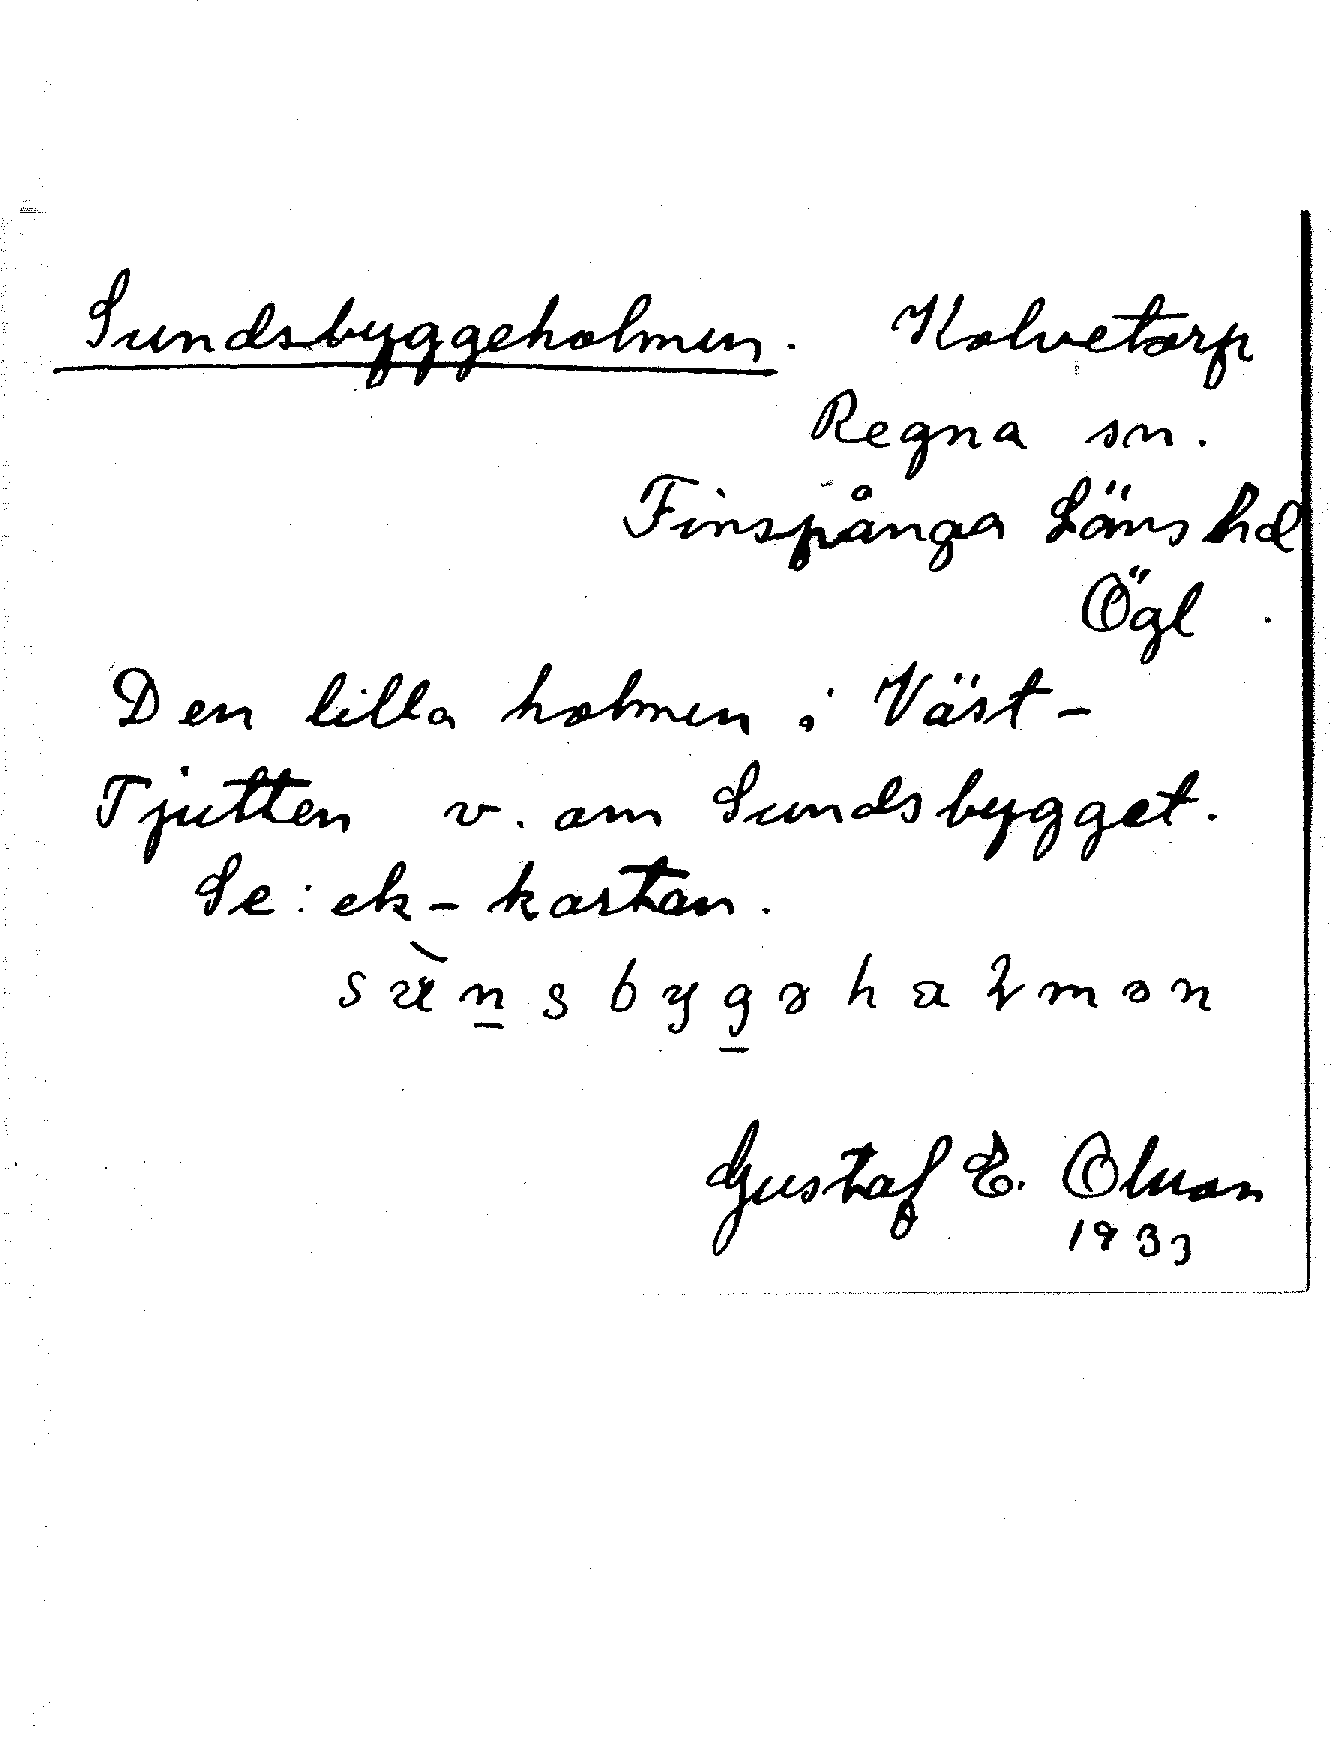 Sundsbyggeholmen. Kolvetorp
Regna sn.
Finspånga Läns hd
Ögl.
Den lilla holmen i Väst-
Tjutten v. om Sundsbygget.
Se: ek-kartan.
Gustaf E. Olsson
1933